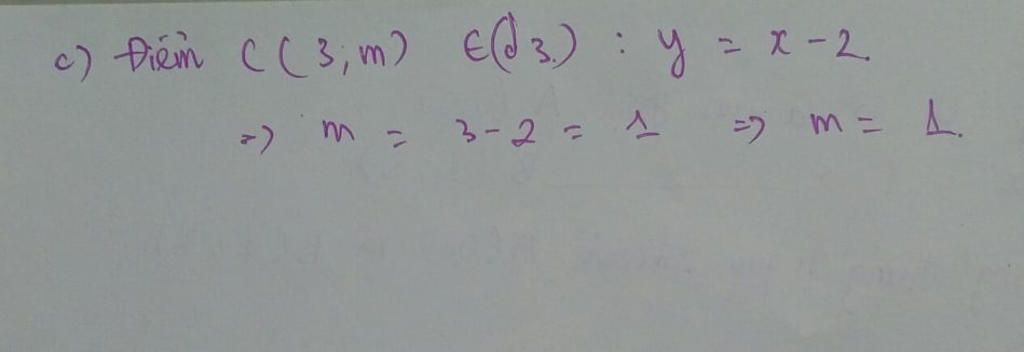 c) Điểm C(3;m) ∈(d3.) : y = x - 2.
=> m = 3 - 2 = 1 => m = 1.